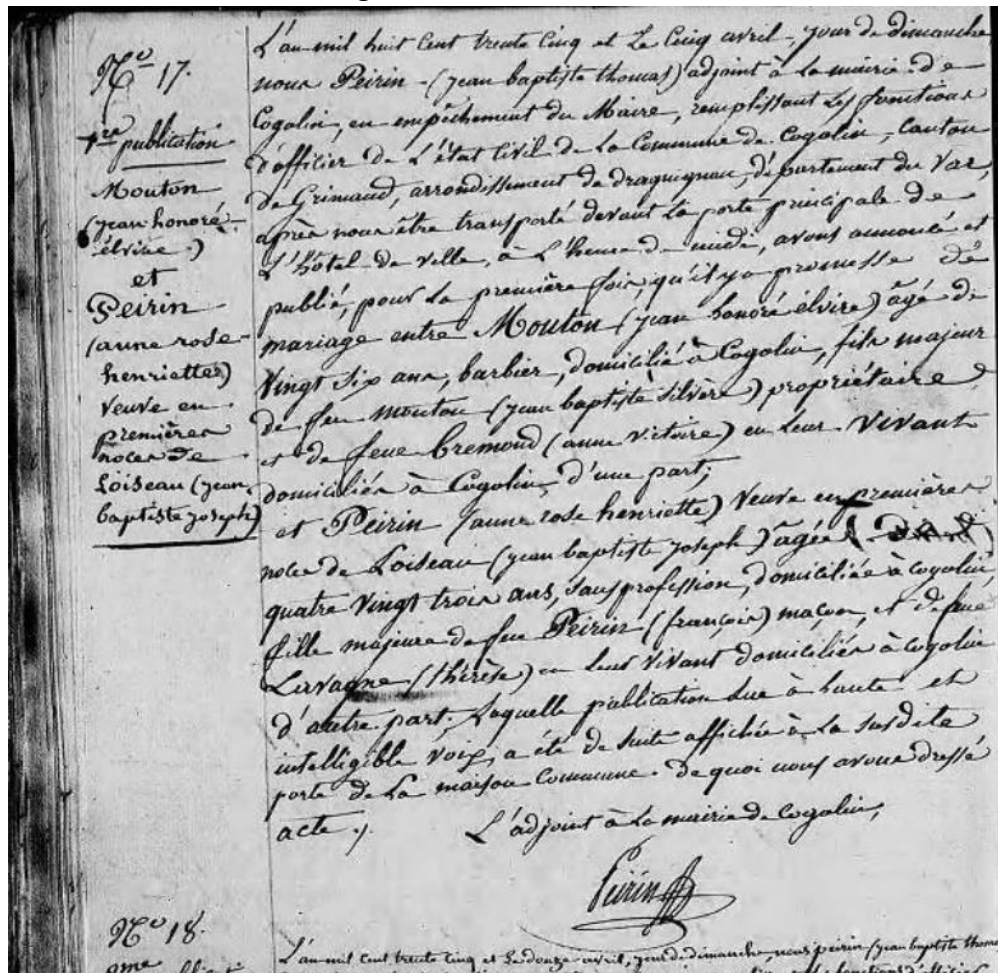 N.º 17.
1.re publication
Mouton
(jean honoré
élvire.)
et
Peirin
(anne rose
henriette)
Veuve en
premières
noces de
Loiseau (jean
baptiste joseph)
L'an mil huit Cent trente Cinq et Le Cinq avril, jour de dimanche
nous Peirin (jean baptiste thomas) adjoint à la mairie de
Cogolin, en empêchement du Maire, remplissant les fonctions
d'officier de L'état Civil de la Commune de Cogolin, Canton
de Grimaud, arrondissement de draguignan, département du Var,
après nous être transporté devant la porte principale de
L'hôtel de ville, à L'heure de midi, avons annoncé et
publié, pour la première fois, qu'il y a promesse de
mariage entre Mouton (jean honoré élvire) âgé de
Vingt six ans, barbier, domicilié à Cogolin, fils majeur
de feu Mouton (jean baptiste silvère) propriétaire
et de feue bremond (anne victoire) en Leur Vivant
domiciliés à Cogolin, d'une part;
et Peirin (anne rose henriette) Veuve en premières
noces de Loiseau (jean baptiste joseph) âgée
quatre Vingt trois ans, sans profession, domiciliée à Cogolin,
fille majeure de feu Peirin (françois) maçon, et de feue
(thérèse) en Leur Vivant domiciliés à Cogolin
d'autre part; Laquelle publication lue à haute et
intelligible voix, a été de suite affichée à la susdite
porte de la maison Commune. de quoi nous avons dressé
acte.
L'adjoint à la mairie de Cogolin,
Peirin
N.º 18.
2me
L'an mil Cent trente Cinq et Le douze avril, jour de dimanche, nous peirin (jean baptiste thomas